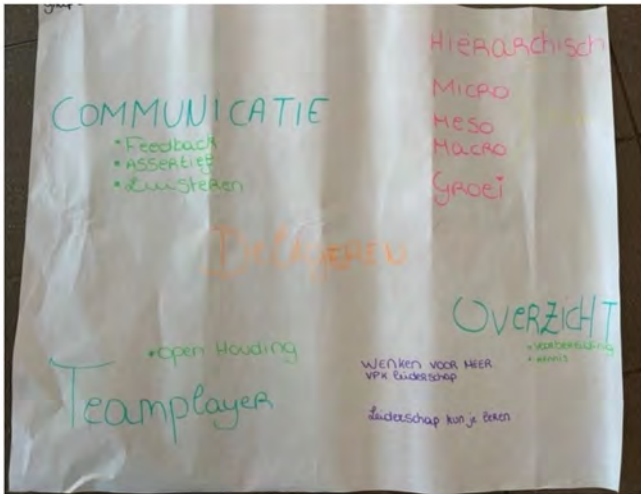 COMMUNICATIE
• Feedback
• Assertief
• Luisteren
Hierarchisch
Micro
Meso
Macro
Groei
Delegeren
Overzicht
• voorbereiding
• kennis
• Open Houding
Teamplayer
Wenken voor meer
VPK leiderschap
Leiderschap kun je leren